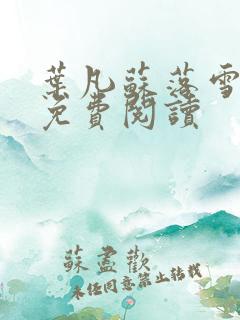 葉凡蘇落雪
免費閱讀
蘇盡歡
未經同意禁止轉載